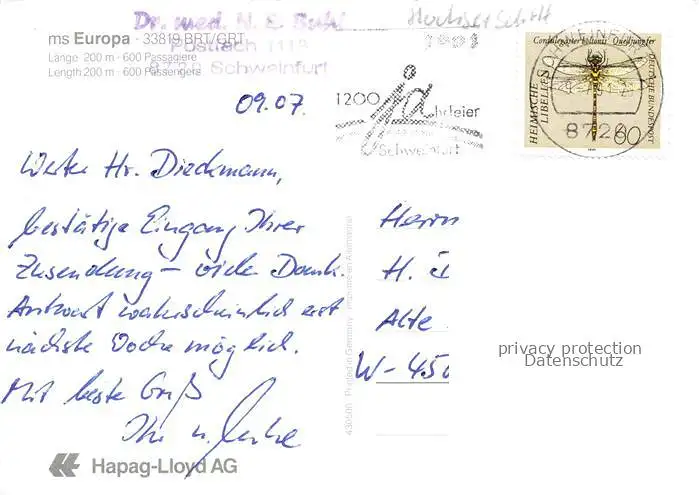 Dr. med. H. E. Buhl
Postfach 1113
8720 Schweinfurt
ms Europa · 33819 BRT/GRT
Länge 200 m - 600 Passagiere
Length 200 m - 600 Passengers
09.07.
1200
ja
hrfeier
Schweinfurt
Cordulegaster bidentatus Quelljungfer
HEIMISCHE
LIBELLEN
DEUTSCHE BUNDESPOST
60
8720
Werter Hr. Dieckmann,
bestätige Eingang Ihrer
Zusendung – vielen Dank.
Antwort wahrscheinlich erst
nächste Woche möglich.
Mit beste Gruß
Ihr
Herrn
H. D
Alte
W-450
430500 Printed in Germany
privacy protection
Datenschutz
Hapag-Lloyd AG